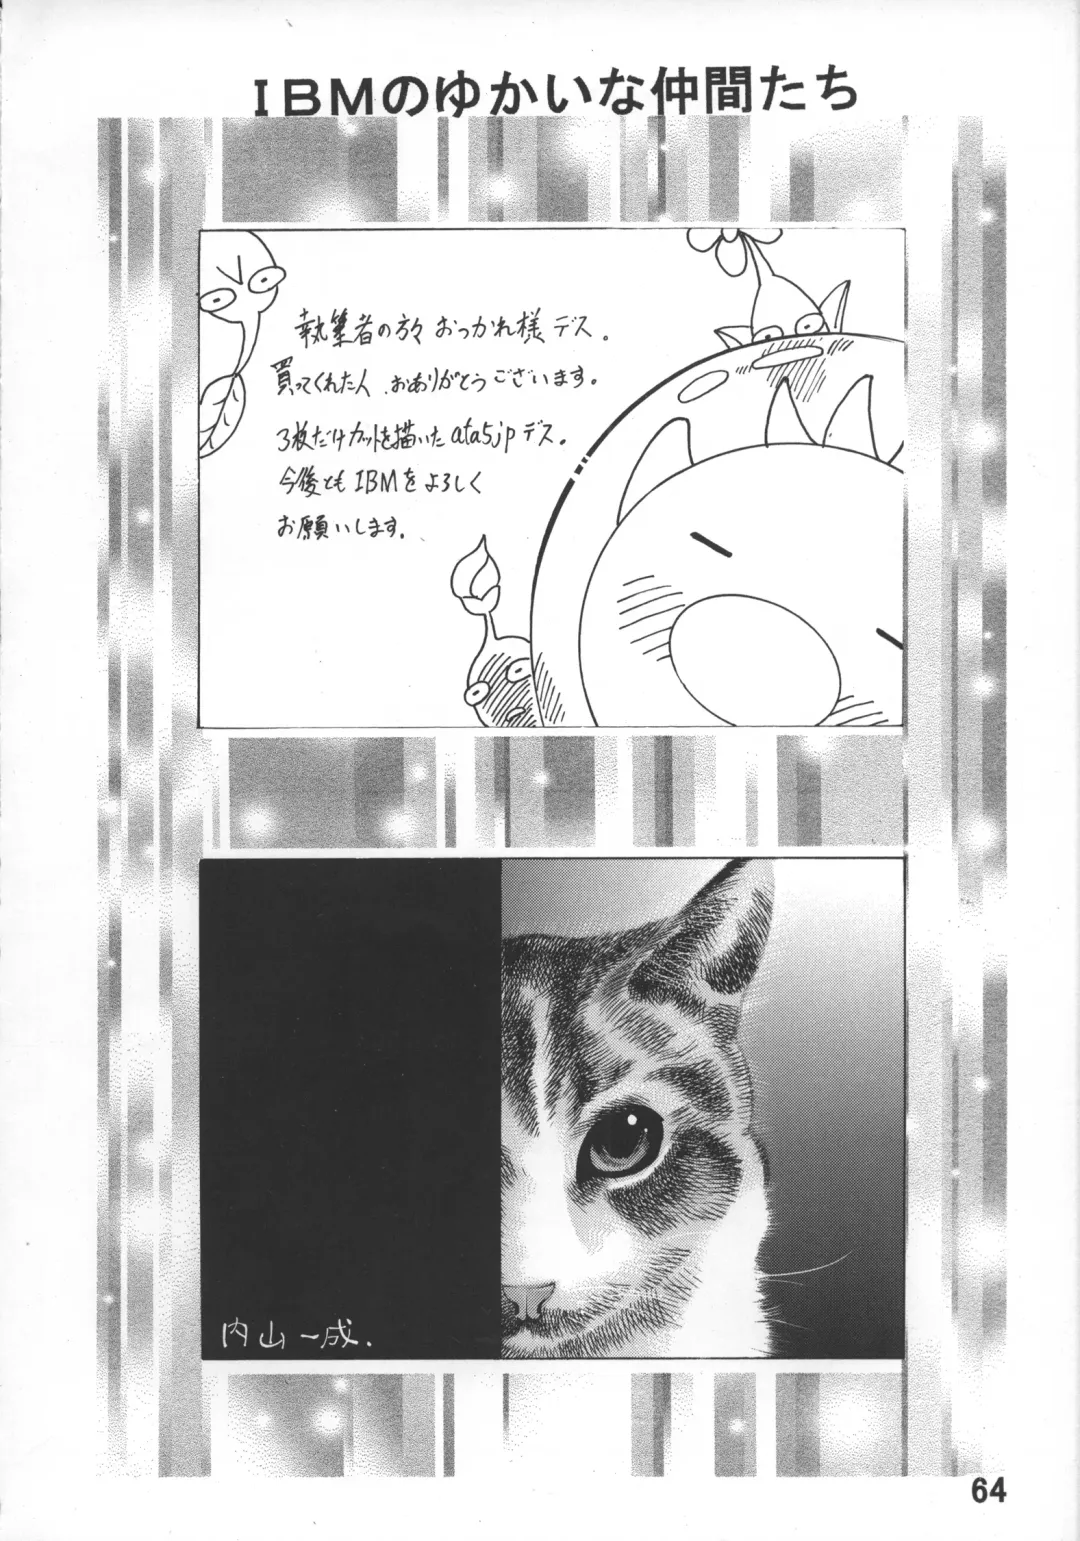 IBMのゆかいな仲間たち
執筆者の方々 おつかれ様デス。
買ってくれた人、おありがとうございます。
3枚だけカットを描いたata5jpデス。
今後とも IBMをよろしく
お願いします。
内山一成.
64